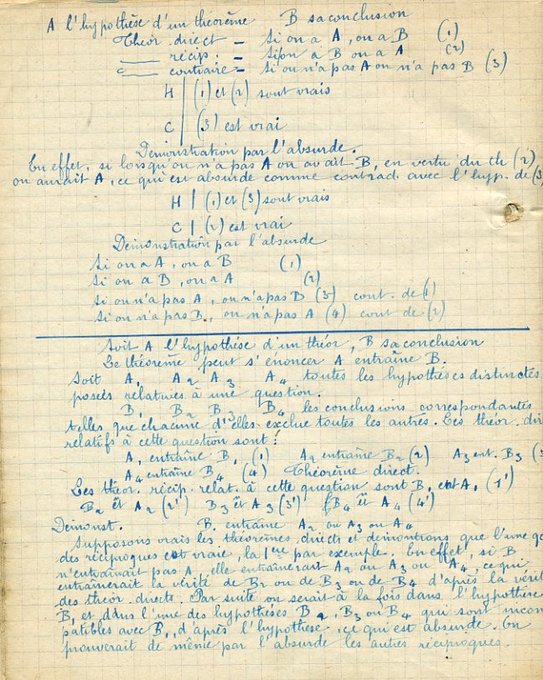 A l'hypothèse d'un théorème B sa conclusion
Théor. direct = Si on a A, on a B (1)
récip. = Si on a B on a A (2)
contraire = Si on n'a pas A on n'a pas B (3)
H | (1) et (2) sont vrais
C | (3) est vrai
Démonstration par l'absurde.
En effet, si lorsqu'on n'a pas A on avait B, en vertu du th (2)
on aurait A, ce qui est absurde comme contrad. avec l'hyp. de (3
H | (1) et (3) sont vrais
C | (2) est vrai
Démonstration par l'absurde
Si on a A, on a B (1)
Si on a B, on a A (2)
Si on n'a pas A, on n'a pas B (3) cont. de (1)
Si on n'a pas B, on n'a pas A (4) cont de (2)
Soit A l'hypothèse d'un théor, B sa conclusion
Le théorème peut s'énoncer A entraîne B.
Soit A1 A2 A3 A4 toutes les hypothèses distinctes
posées relatives à une question.
B1 B2 B3 B4 les conclusions correspondantes
telles que chacune d'elles exclue toutes les autres. Les théor. dir
relatifs à cette question sont :
A1 entraîne B1 (1) A2 entraîne B2 (2) A3 ent. B3 (3
A4 entraîne B4 (4) Théorème direct.
Les théor. récip. relat. à cette question sont B1 A1 (1')
B2 et A2 (2') B3 et A3 (3') B4 et A4 (4')
Démonst. B1 entraîne A2 ou A3 ou A4
Supposons vrais les théorèmes directs et démontrons que l'une qc
des réciproques est vraie, la 1ère par exemple. En effet, si B
n'entraînait pas A, elle entraînerait A2 ou A3 ou A4, ce qui
entraînerait la vérité de B2 ou de B3 ou de B4 d'après la véri
des théor. directs. Par suite on serait à la fois dans l'hypothèse
B1 et dans l'une des hypothèses B2, B3 ou B4 qui sont incom
patibles avec B1, d'après l'hypothèse, ce qui est absurde. On
prouverait de même par l'absurde les autres réciproques.